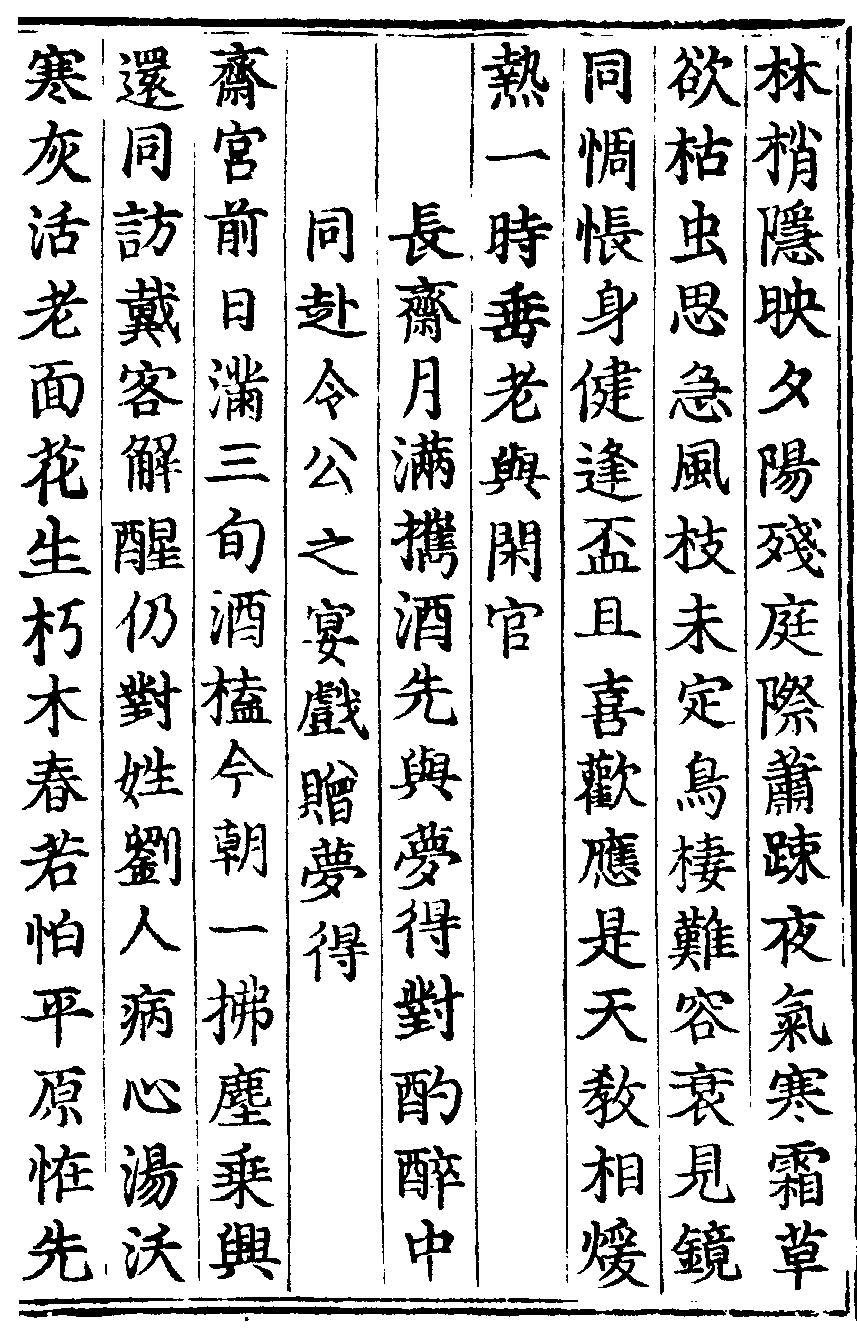 林梢隱映夕陽殘庭際蕭踈夜氣寒霜草
欲枯虫思急風枝未定鳥棲難容衰見鏡
同惆悵身健逢盃且喜歡應是天教相煖
熱一時垂老與閑官
長齋月滿攜酒先與夢得對酌醉中
同赴令公之宴戲贈夢得
齋宮前日滿三旬酒榼今朝一拂塵乗興
還同訪戴客解酲仍對姓劉人病心湯沃
寒灰活老面花生朽木春若怕平原恠先